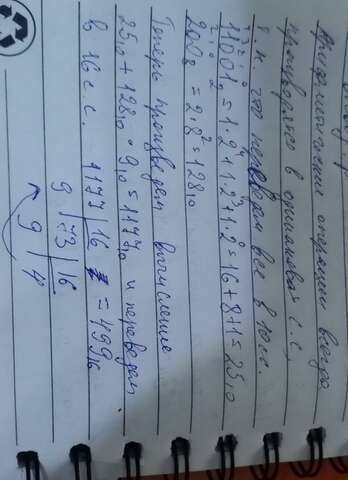 Арифметические операции всегда
производятся в одинаковых с.с.,
т.к. это переведём все в 10 с.с.
4 3 2 1 0
11001₂ = 1·2⁴+1·2³+1·2⁰=16+8+1=25₁₀
2 1 0
200₈ = 2·8²=128₁₀
Теперь произведём вычисление
25₁₀+128₁₀·9₁₀=1177₁₀ и переведём
в 16 с.с. 1177|16 = 499₁₆
9 |73|16
9 |4